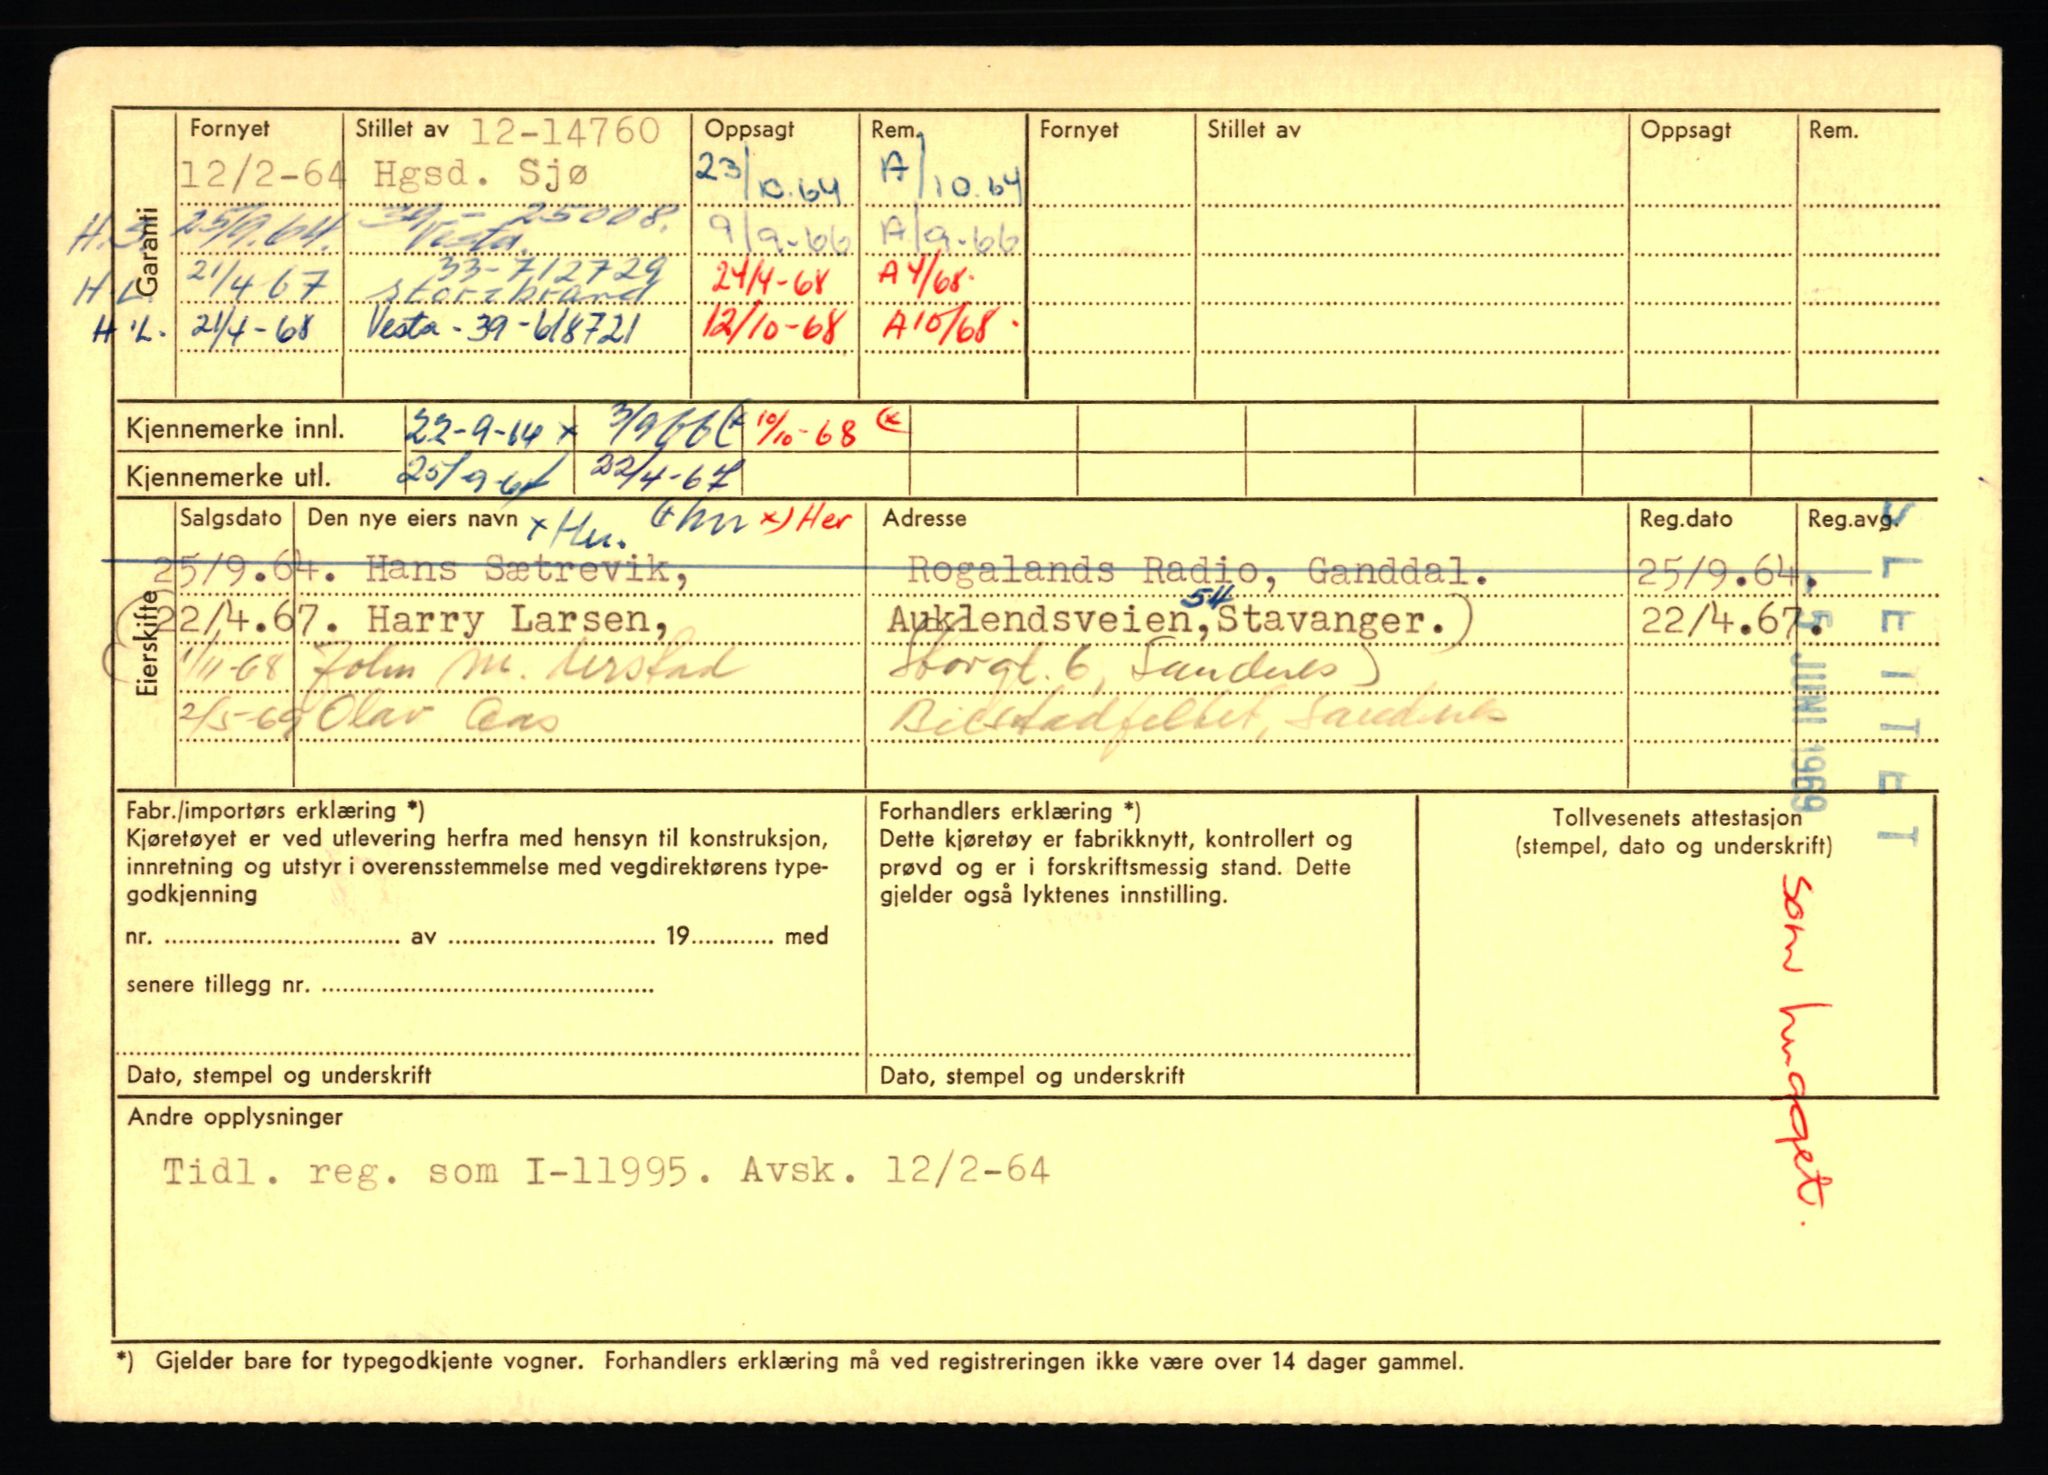 Garanti
Fornyet Stillet av 12-14760 Oppsagt Rem. Fornyet Stillet av Oppsagt Rem.
12/2-64 Hgsd. Sjø 23/10.64 A/10.64
H.S. 25/9.64. 39-25008. Vesta. 9/9-66 A/9-66
H.L. 21/4 67 33-712729 Storebrand 24/4-68 A4/68.
H.L. 21/4-68 Vesta-39-618721 12/10-68 A10/68.
Kjennemerke innl. 22-9-64 x 3/9 66 (x 10/10-68 (x
Kjennemerke utl. 25/9-64 22/4-67
Eierskifte
Salgsdato Den nye eiers navn x Hn. (x hn x) Her Adresse Reg.dato Reg.avg.
25/9.64. Hans Sætrevik, Rogalands Radio, Ganddal. 25/9.64.
22/4.67. Harry Larsen, Auklendsveien, 54 Stavanger.) 22/4.67.
1/11-68 John M. Storgt. 6, Sandnes)
2/5-69 Olav Aas Sandnes
SLEITET
5 JUNI 1969
som hugget.
Fabr./importørs erklæring *)
Kjøretøyet er ved utlevering herfra med hensyn til konstruksjon,
innretning og utstyr i overensstemmelse med vegdirektørens type-
godkjenning
nr. av 19 med
senere tillegg nr.
Dato, stempel og underskrift
Forhandlers erklæring *)
Dette kjøretøy er fabrikknytt, kontrollert og
prøvd og er i forskriftsmessig stand. Dette
gjelder også lyktenes innstilling.
Dato, stempel og underskrift
Tollvesenets attestasjon
(stempel, dato og underskrift)
Andre opplysninger
Tidl. reg. som I-11995. Avsk. 12/2-64
*) Gjelder bare for typegodkjente vogner. Forhandlers erklæring må ved registreringen ikke være over 14 dager gammel.